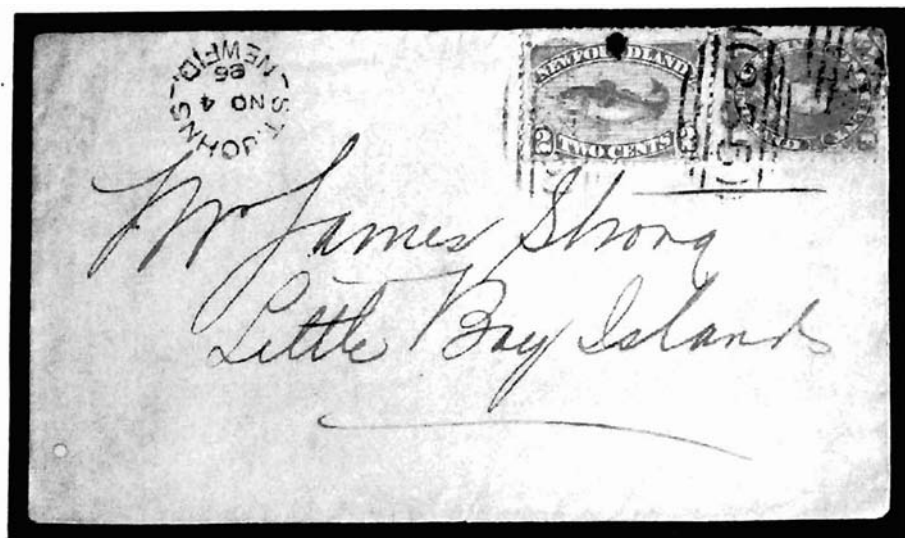 ST. JOHN'S
NO 4
NEWF'D.
NEWFOUNDLAND
2 TWO CENTS 2
Mr James Strong
Little Bay Islands